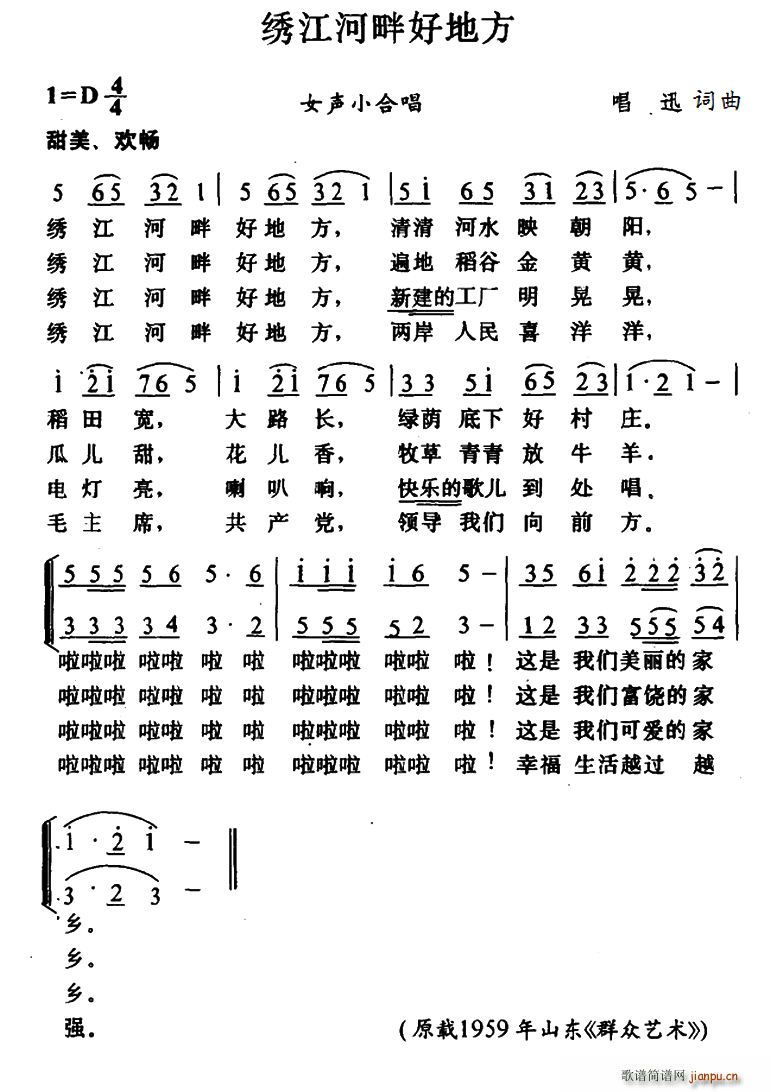 绣江河畔好地方
1=D 4/4
女声小合唱
唱 迅 词曲
甜美、欢畅
5 65 32 1 | 5 65 32 1 | 5i 65 31 23 | 5·6 5 – |
绣 江 河 畔 好 地 方， 清清 河水 映 朝 阳，
绣 江 河 畔 好 地 方， 遍地 稻谷 金 黄 黄，
绣 江 河 畔 好 地 方， 新建的工厂 明 晃 晃，
绣 江 河 畔 好 地 方， 两岸 人民 喜 洋 洋，
i 2i 76 5 | i 2i 76 5 | 33 5i 65 23 | 1·2 1 – |
稻 田 宽， 大 路 长， 绿荫 底下 好 村 庄。
瓜 儿 甜， 花 儿 香， 牧草 青青 放 牛 羊．
电 灯 亮， 喇 叭 响， 快乐的歌儿 到 处 唱。
毛 主 席， 共 产 党， 领导 我们 向 前 方．
555 56 5·6 | iii i6 5 – | 35 6i 222 32
333 34 3·2 | 555 52 3 – | 12 33 555 54
啦啦啦 啦啦 啦 啦 啦啦啦 啦啦 啦！ 这是 我们美丽的 家
啦啦啦 啦啦 啦 啦 啦啦啦 啦啦 啦！ 这是 我们富饶的 家
啦啦啦 啦啦 啦 啦 啦啦啦 啦啦 啦！ 这是 我们可爱的 家
啦啦啦 啦啦 啦 啦 啦啦啦 啦啦 啦！ 幸福 生活越过 越
i·2 i –
3·2 3 –
乡。
乡。
乡。
强。
（原载1959年山东《群众艺术》）
歌谱简谱网
jianpu.cn